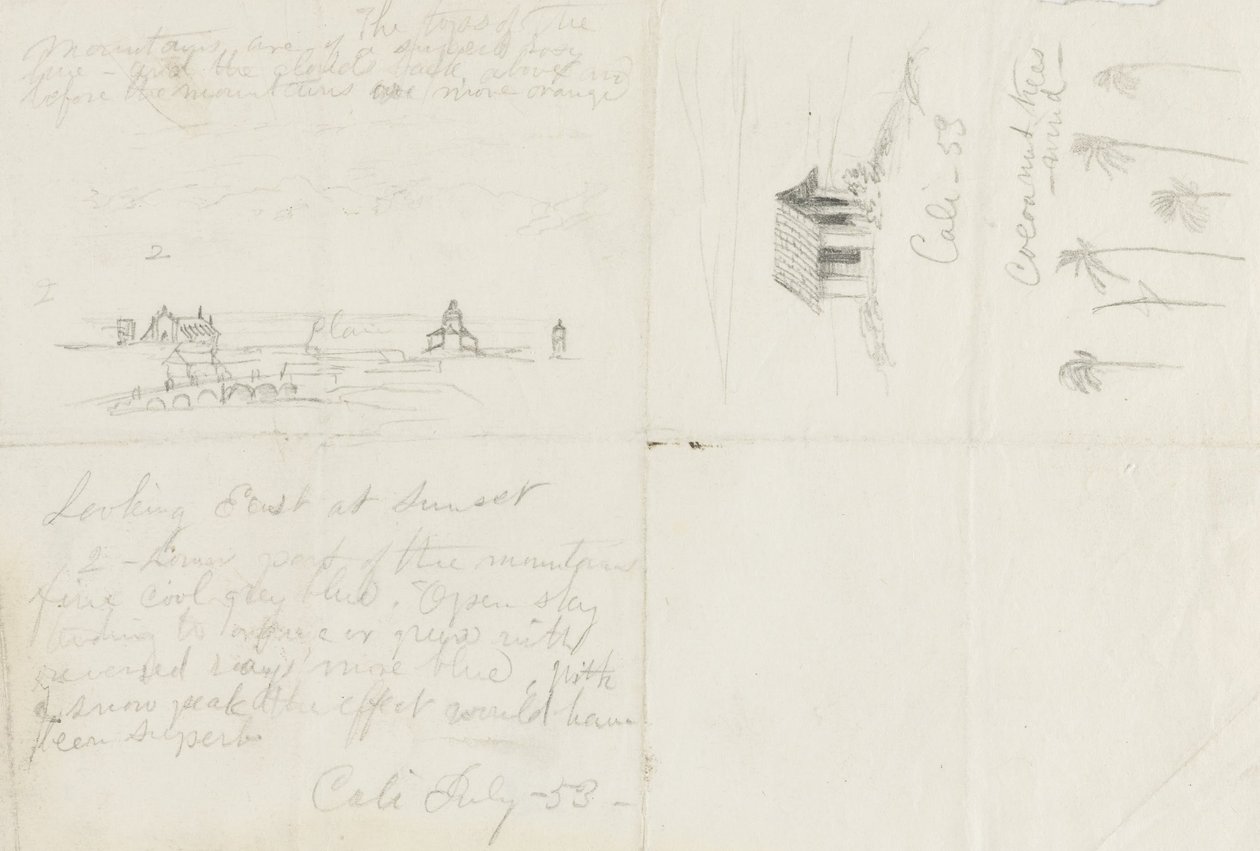 The tops of the
mountains are of a superb rosy
hue - and the clouds back, above and
before the mountains are more orange
2
2
Plain
Looking East at Sunset
2 - Lower part of the mountains
fine cool grey blue. Open sky
tending to orange or green with
reversed rays more blue, with
a snow peak the effect would have
been superb.
Cali July - 53 -
Cali - 53
Cocoanut trees
- wind -